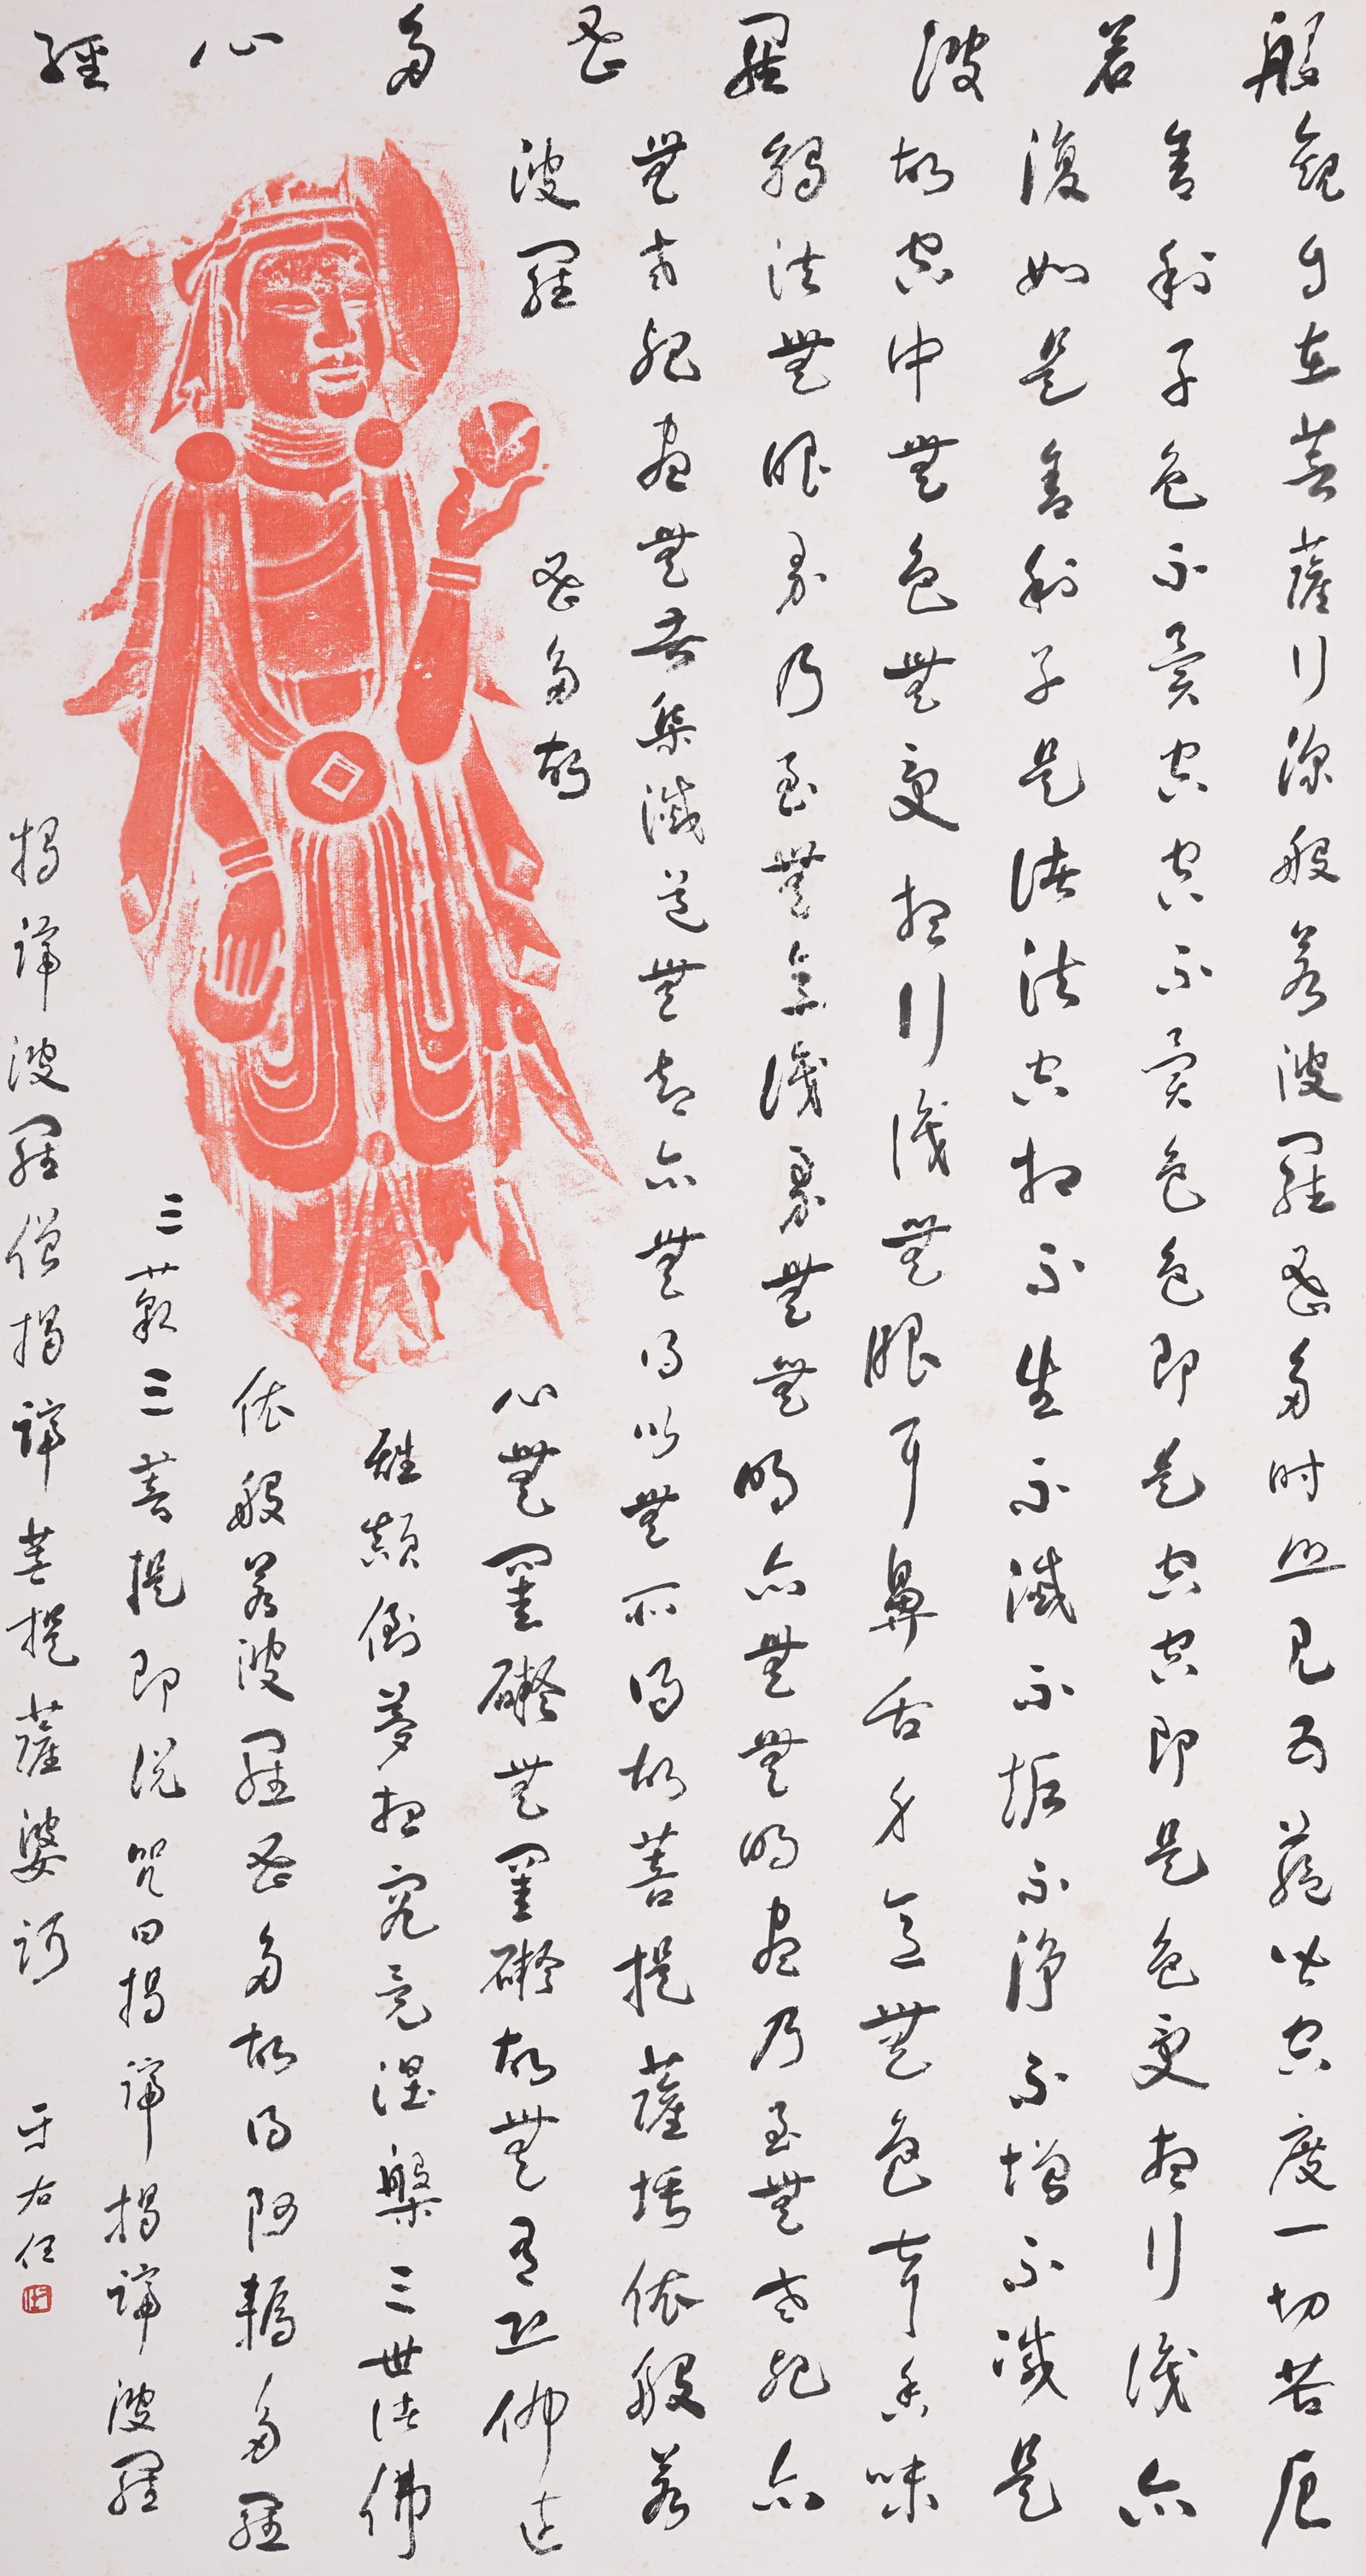 般若波羅蜜多心經
觀自在菩薩行深般若波羅蜜多時照見五蘊皆空度一切苦厄
舍利子色不異空空不異色色即是空空即是色受想行識亦
復如是舍利子是諸法空相不生不滅不垢不淨不增不減是
故空中無色無受想行識無眼耳鼻舌身意無色聲香味
觸法無眼界乃至無意識界無無明亦無無明盡乃至無老死亦
無老死盡無苦集滅道無智亦無得以無所得故菩提薩埵依般若
波羅蜜多故心無罣礙無罣礙故無有恐怖遠
離顛倒夢想究竟涅槃三世諸佛
依般若波羅蜜多故得阿耨多羅
三藐三菩提即說咒曰揭諦揭諦波羅
揭諦波羅僧揭諦菩提薩婆訶
于右任